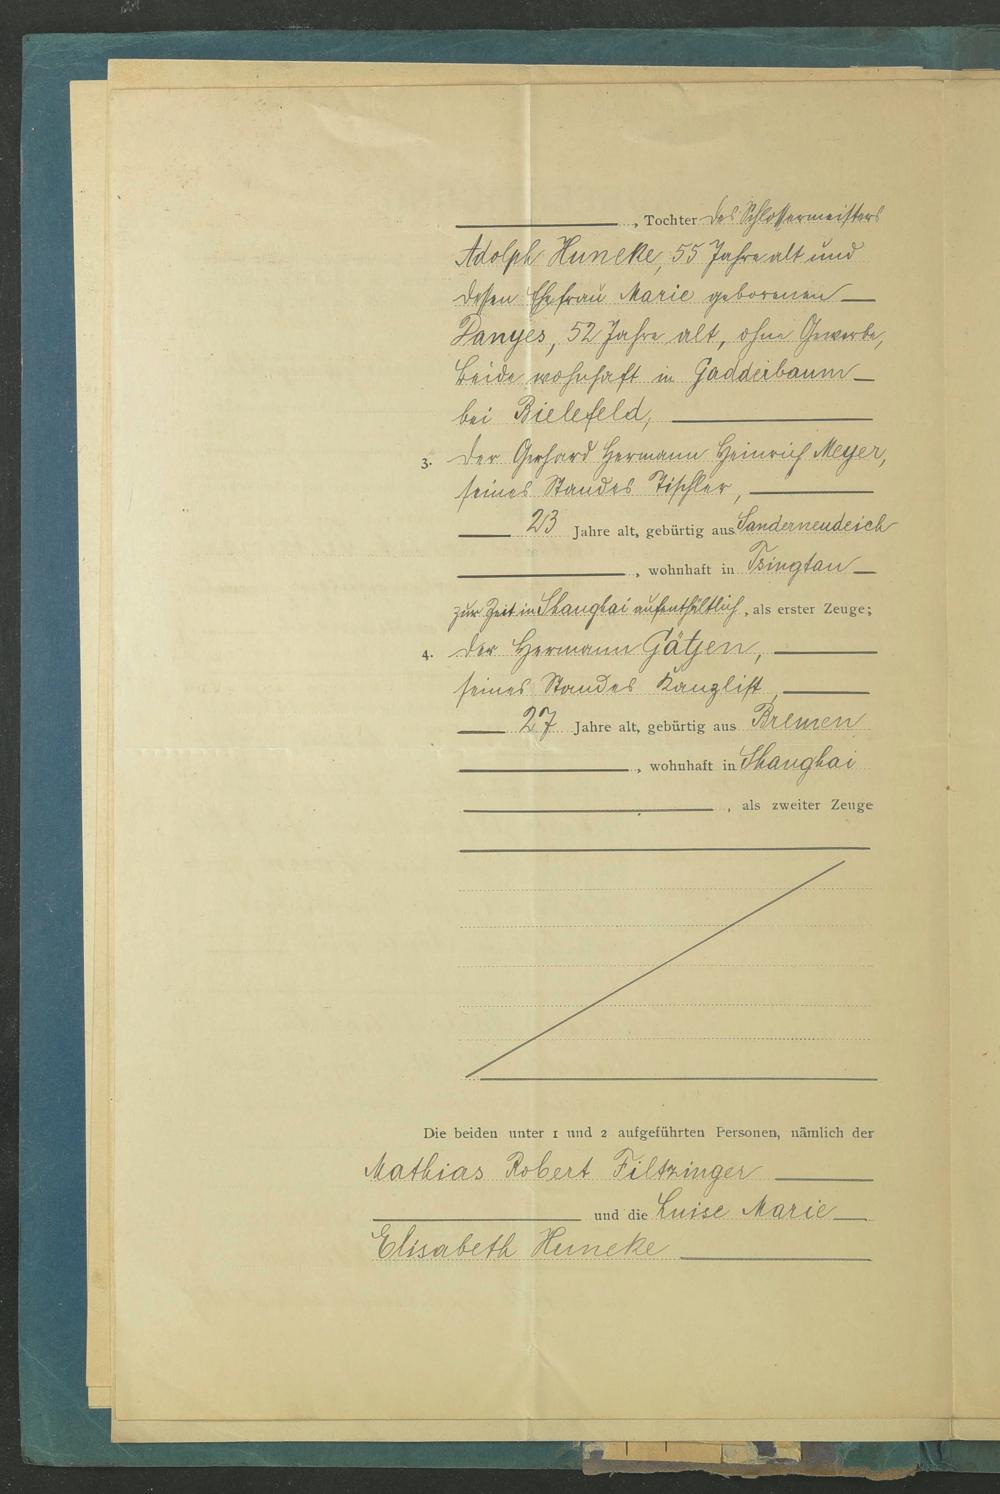 , Tochter des Schlossermeisters
Adolph Huneke, 55 Jahre alt und
dessen Ehefrau Marie geborenen
Panyes, 52 Jahre alt, ohne Gewerbe,
beide wohnhaft in Gadderbaum
bei Bielefeld,
3. der Gerhard Hermann Heinrich Meyer,
seines Standes Tischler,
23 Jahre alt, gebürtig aus Sanderneudeich
, wohnhaft in Tsingtau
zur Zeit in Shanghai aufenthältlich, als erster Zeuge;
4. der Hermann Gätjen,
seines Standes Kanzlist,
27 Jahre alt, gebürtig aus Bremen
, wohnhaft in Shanghai
, als zweiter Zeuge
Die beiden unter 1 und 2 aufgeführten Personen, nämlich der
Mathias Robert Filtzinger
und die Luise Marie
Elisabeth Huneke